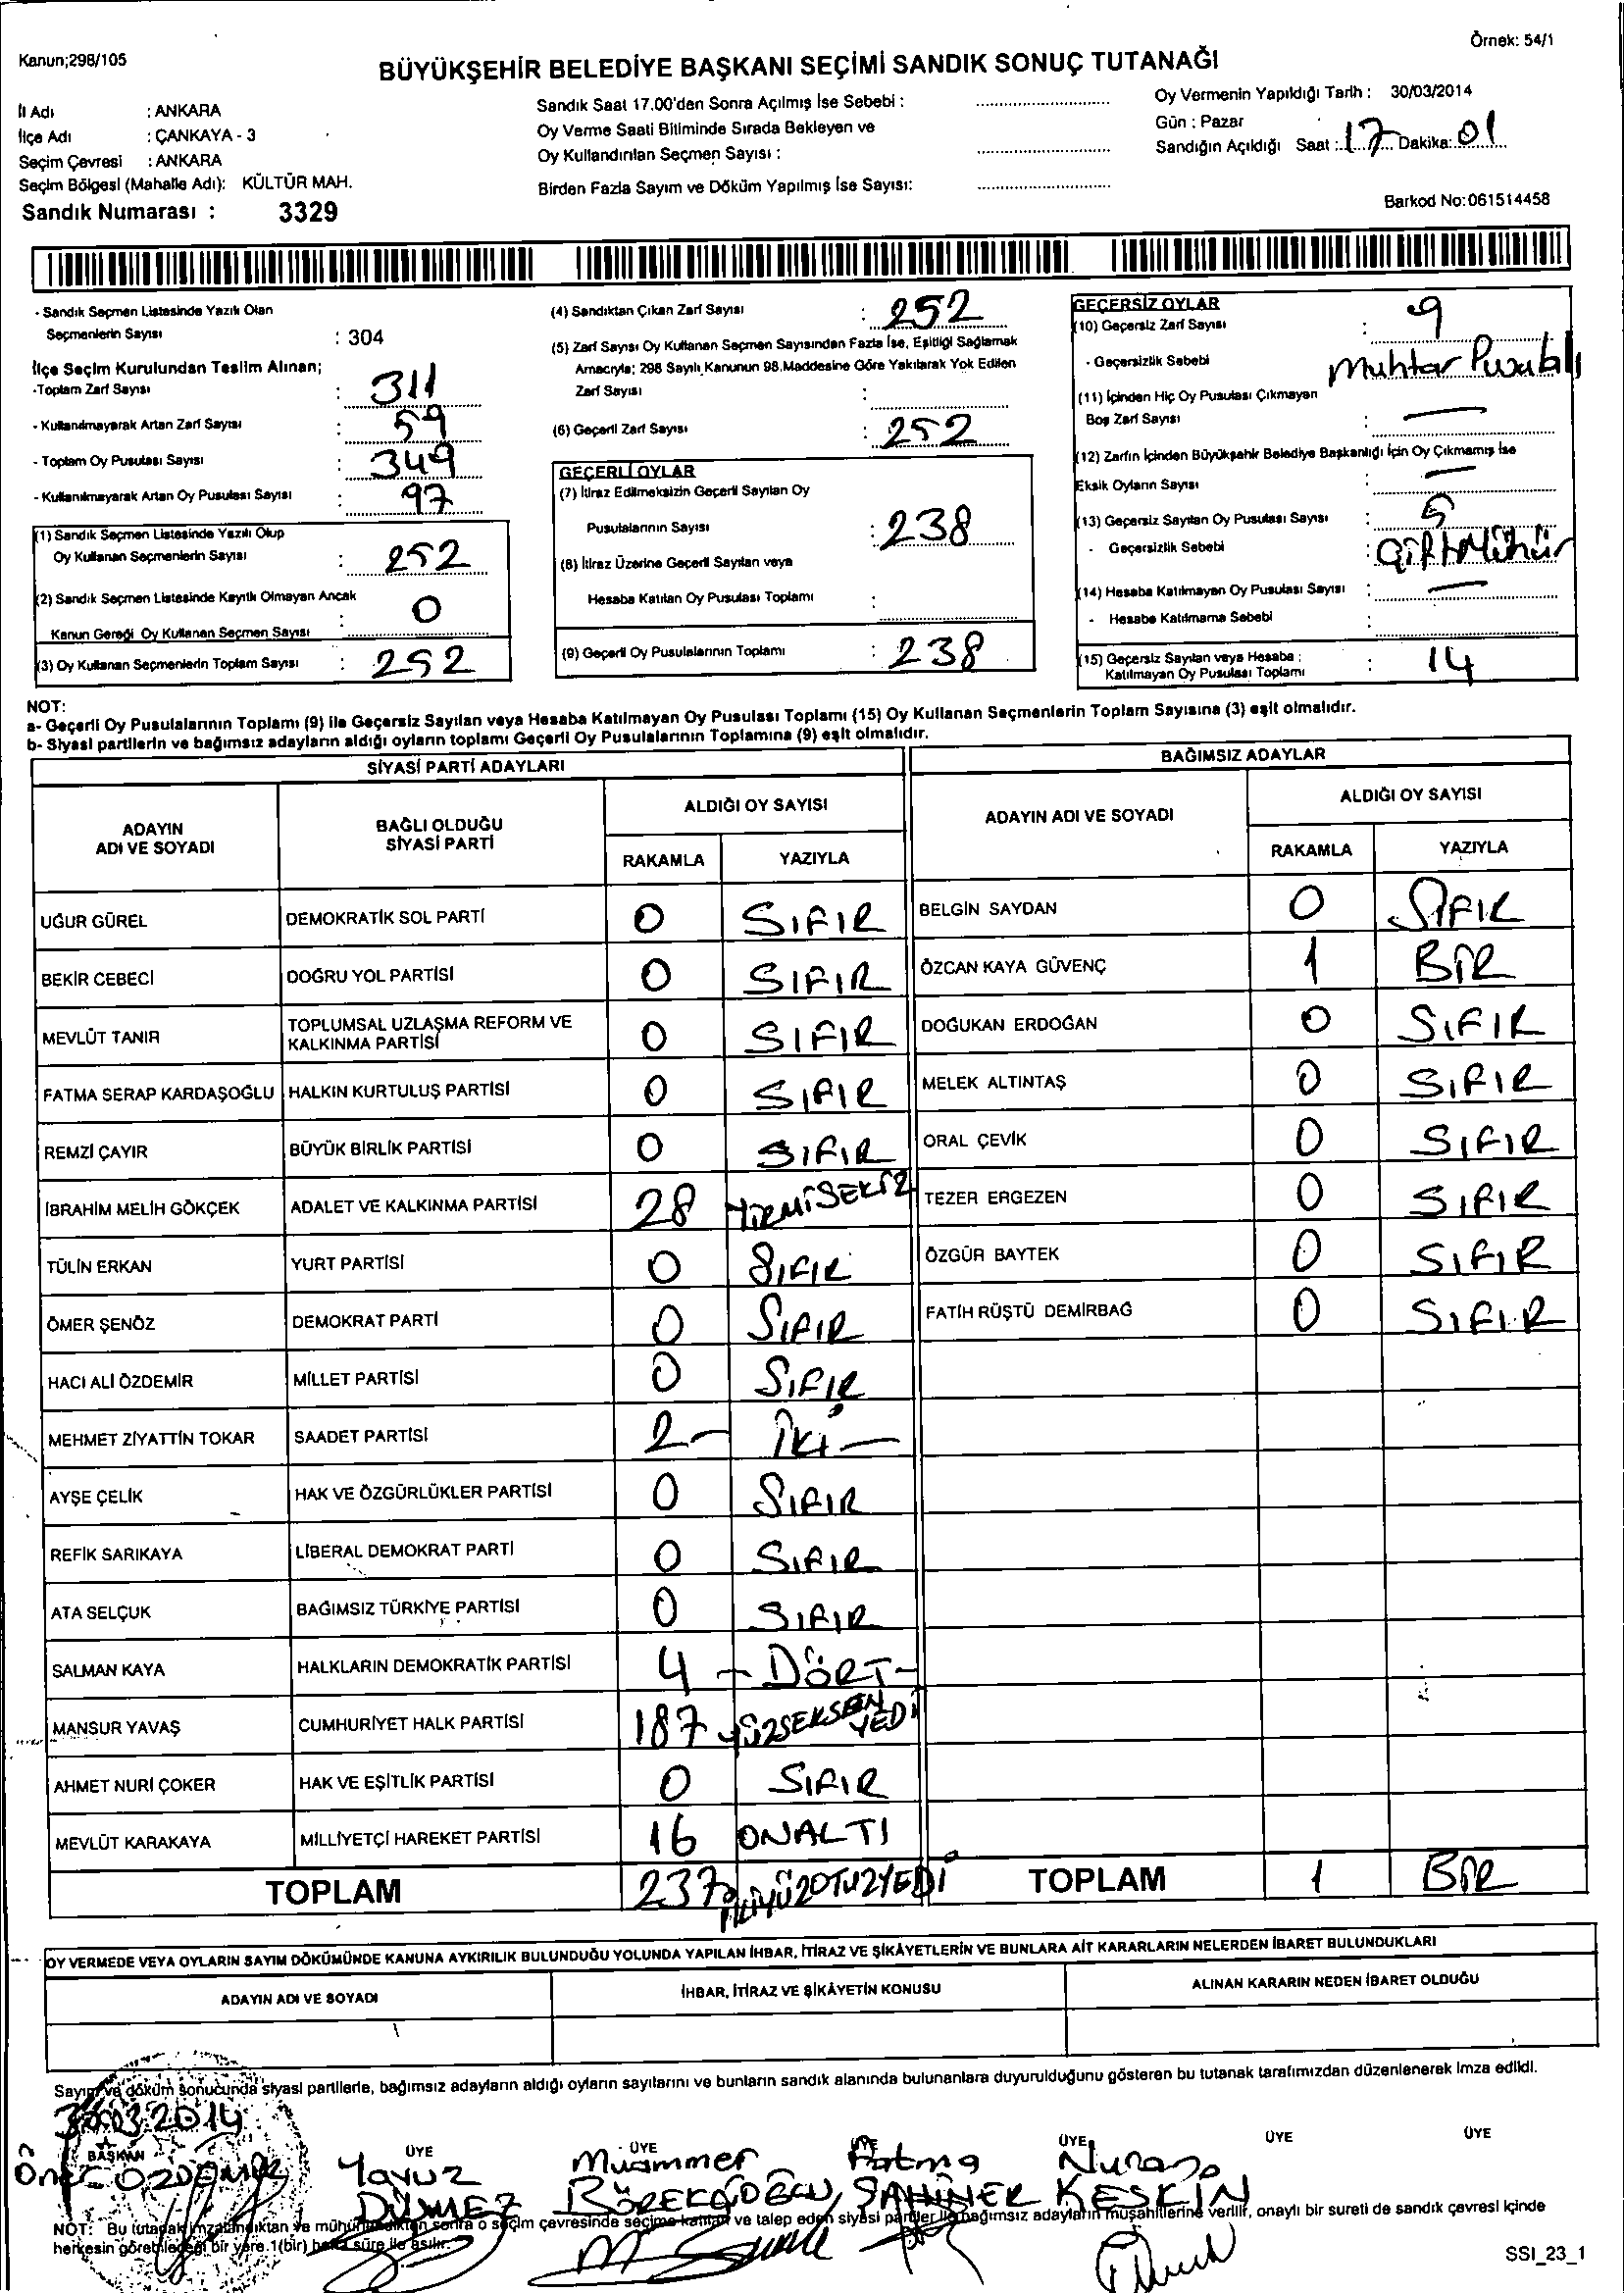 Kanun;298/105
Örnek: 54/1
BÜYÜKŞEHİR BELEDİYE BAŞKANI SEÇİMİ SANDIK SONUÇ TUTANAĞI
İl Adı : ANKARA
İlçe Adı : ÇANKAYA - 3
Seçim Çevresi : ANKARA
Seçim Bölgesi (Mahalle Adı): KÜLTÜR MAH.
Sandık Numarası : 3329
Sandık Saat 17.00'den Sonra Açılmış İse Sebebi :
Oy Verme Saati Bitiminde Sırada Bekleyen ve
Oy Kullandırılan Seçmen Sayısı :
Birden Fazla Sayım ve Döküm Yapılmış İse Sayısı:
Oy Vermenin Yapıldığı Tarih : 30/03/2014
Gün : Pazar
Sandığın Açıldığı Saat : 17 Dakika: 01
Barkod No:061514458
- Sandık Seçmen Listesinde Yazılı Olan
Seçmenlerin Sayısı : 304
İlçe Seçim Kurulundan Teslim Alınan;
-Toplam Zarf Sayısı : 311
- Kullanılmayarak Artan Zarf Sayısı : 59
- Toplam Oy Pusulası Sayısı : 349
- Kullanılmayarak Artan Oy Pusulası Sayısı : 97
(1) Sandık Seçmen Listesinde Yazılı Olup
Oy Kullanan Seçmenlerin Sayısı : 252
(2) Sandık Seçmen Listesinde Kayıtlı Olmayan Ancak
Kanun Gereği Oy Kullanan Seçmen Sayısı : 0
(3) Oy Kullanan Seçmenlerin Toplam Sayısı : 252
(4) Sandıktan Çıkan Zarf Sayısı : 252
(5) Zarf Sayısı Oy Kullanan Seçmen Sayısından Fazla İse, Eşitliği Sağlamak
Amacıyla; 298 Sayılı Kanunun 98.Maddesine Göre Yakılarak Yok Edilen
Zarf Sayısı :
(6) Geçerli Zarf Sayısı : 252
GEÇERLİ OYLAR
(7) İtiraz Edilmeksizin Geçerli Sayılan Oy
Pusulalarının Sayısı : 238
(8) İtiraz Üzerine Geçerli Sayılan veya
Hesaba Katılan Oy Pusulası Toplamı :
(9) Geçerli Oy Pusulalarının Toplamı : 238
GEÇERSİZ OYLAR
(10) Geçersiz Zarf Sayısı : 9
- Geçersizlik Sebebi Muhtar Pusulalı
(11) İçinden Hiç Oy Pusulası Çıkmayan
Boş Zarf Sayısı : —
(12) Zarfın İçinden Büyükşehir Belediye Başkanlığı İçin Oy Çıkmamış İse
Eksik Oyların Sayısı : —
(13) Geçersiz Sayılan Oy Pusulası Sayısı : 5
- Geçersizlik Sebebi : Çift Mühür
(14) Hesaba Katılmayan Oy Pusulası Sayısı : —
- Hesaba Katılmama Sebebi :
(15) Geçersiz Sayılan veya Hesaba :
Katılmayan Oy Pusulası Toplamı : 14
NOT:
a- Geçerli Oy Pusulalarının Toplamı (9) ile Geçersiz Sayılan veya Hesaba Katılmayan Oy Pusulası Toplamı (15) Oy Kullanan Seçmenlerin Toplam Sayısına (3) eşit olmalıdır.
b- Siyasi partilerin ve bağımsız adayların aldığı oyların toplamı Geçerli Oy Pusulalarının Toplamına (9) eşit olmalıdır.
SİYASİ PARTİ ADAYLARI
ADAYIN
ADI VE SOYADI
BAĞLI OLDUĞU
SİYASİ PARTİ
ALDIĞI OY SAYISI
RAKAMLA YAZIYLA
UĞUR GÜREL DEMOKRATİK SOL PARTİ 0 SIFIR
BEKİR CEBECİ DOĞRU YOL PARTİSİ 0 SIFIR
MEVLÜT TANIR TOPLUMSAL UZLAŞMA REFORM VE
KALKINMA PARTİSİ 0 SIFIR
FATMA SERAP KARDAŞOĞLU HALKIN KURTULUŞ PARTİSİ 0 SIFIR
REMZİ ÇAYIR BÜYÜK BİRLİK PARTİSİ 0 SIFIR
İBRAHİM MELİH GÖKÇEK ADALET VE KALKINMA PARTİSİ 28 YİRMİSEKİZ
TÜLİN ERKAN YURT PARTİSİ 0 SIFIR
ÖMER ŞENÖZ DEMOKRAT PARTİ 0 SIFIR
HACI ALİ ÖZDEMİR MİLLET PARTİSİ 0 SIFIR
MEHMET ZİYATTİN TOKAR SAADET PARTİSİ 2 — İKİ —
AYŞE ÇELİK HAK VE ÖZGÜRLÜKLER PARTİSİ 0 SIFIR
REFİK SARIKAYA LİBERAL DEMOKRAT PARTİ 0 SIFIR
ATA SELÇUK BAĞIMSIZ TÜRKİYE PARTİSİ 0 SIFIR
SALMAN KAYA HALKLARIN DEMOKRATİK PARTİSİ 4 — DÖRT —
MANSUR YAVAŞ CUMHURİYET HALK PARTİSİ 187 YÜZSEKSEN YEDİ
AHMET NURİ ÇOKER HAK VE EŞİTLİK PARTİSİ 0 SIFIR
MEVLÜT KARAKAYA MİLLİYETÇİ HAREKET PARTİSİ 16 ONALTI
TOPLAM 237 İKİYÜZOTUZYEDİ
BAĞIMSIZ ADAYLAR
ADAYIN ADI VE SOYADI
ALDIĞI OY SAYISI
RAKAMLA YAZIYLA
BELGİN SAYDAN 0 SIFIR
ÖZCAN KAYA GÜVENÇ 1 BİR
DOĞUKAN ERDOĞAN 0 SIFIR
MELEK ALTINTAŞ 0 SIFIR
ORAL ÇEVİK 0 SIFIR
TEZER ERGEZEN 0 SIFIR
ÖZGÜR BAYTEK 0 SIFIR
FATİH RÜŞTÜ DEMİRBAĞ 0 SIFIR
TOPLAM 1 BİR
OY VERMEDE VEYA OYLARIN SAYIM DÖKÜMÜNDE KANUNA AYKIRILIK BULUNDUĞU YOLUNDA YAPILAN İHBAR, İTİRAZ VE ŞİKÂYETLERİN VE BUNLARA AİT KARARLARIN NELERDEN İBARET BULUNDUKLARI
ADAYIN ADI VE SOYADI İHBAR, İTİRAZ VE ŞİKÂYETİN KONUSU ALINAN KARARIN NEDEN İBARET OLDUĞU
Sayım ve döküm sonucunda siyasi partilerle, bağımsız adayların aldığı oyların sayılarını ve bunların sandık alanında bulunanlara duyurulduğunu gösteren bu tutanak tarafımızdan düzenlenerek imza edildi.
30.03.2014
BAŞKAN ÜYE ÜYE ÜYE ÜYE ÜYE ÜYE
Öner ÖZDEMİR Yavuz DÜŞMEZ Muammer BÖREKÇİOĞLU Fatma ŞAHİNER Nuran KESKİN
NOT: Bu tutanak imzalandıktan ve mühürlendikten sonra o seçim çevresinde seçime katılan ve talep eden siyasi partiler ile bağımsız adayların müşahitlerine verilir, onaylı bir sureti de sandık çevresi içinde
herkesin görebileceği bir yere 1(bir) hafta süre ile asılır.
SSI_23_1